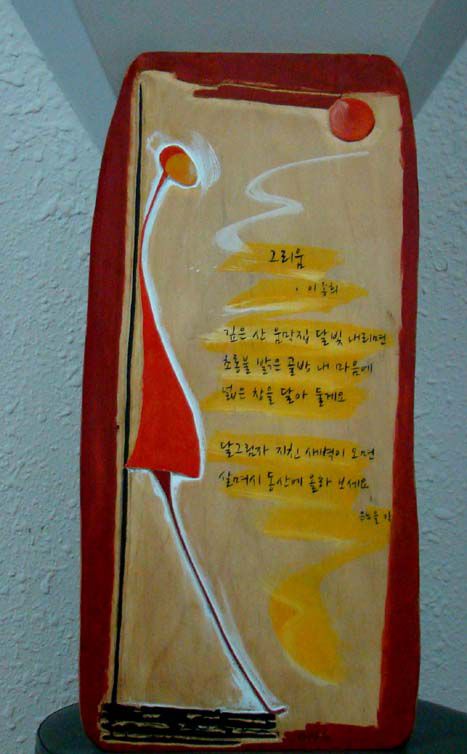 그리움
깊은 산 움막집 달빛 내리면
초롱불 밝은 골방 내 마음에
넓은 창을 달아 둘게요
달그림자 지친 새벽이 오면
살며시 동산에 올라 보세요